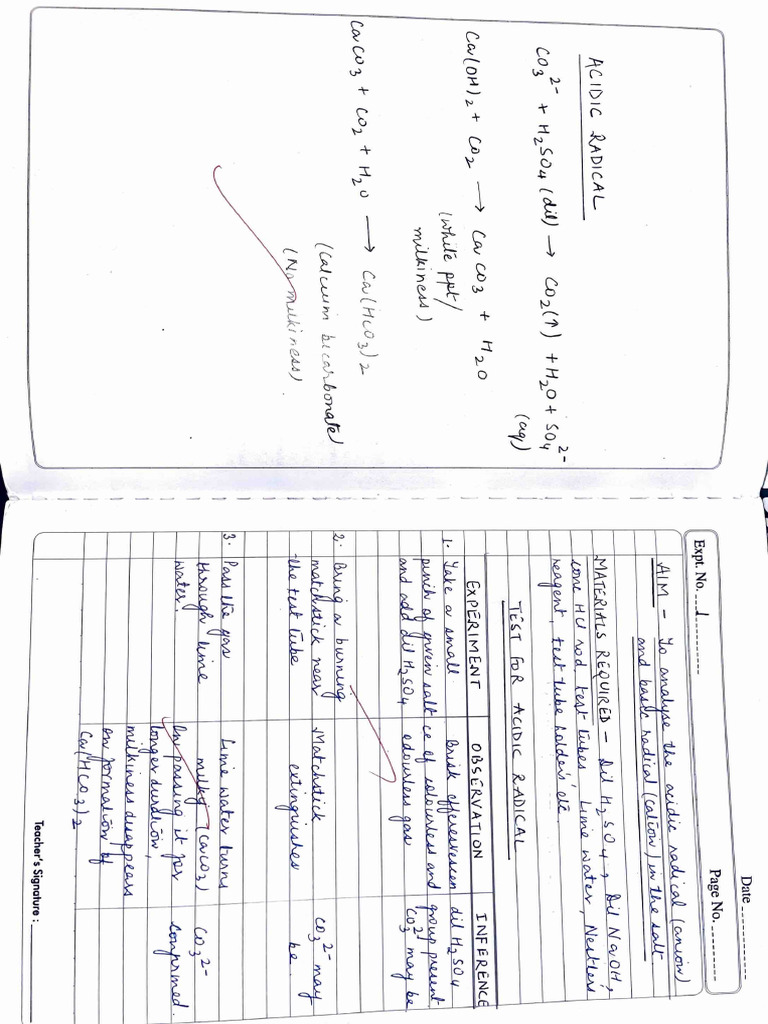 ACIDIC RADICAL
CO3 2- + H2SO4 (dil) → CO2(↑) + H2O + SO4 2-
(aq)
Ca(OH)2 + CO2 → CaCO3 + H2O
(white ppt/
milkiness)
CaCO3 + CO2 + H2O → Ca(HCO3)2
(Calcium bicarbonate)
(No milkiness)
Date
Expt. No. 1
Page No.
AIM - To analyse the acidic radical (anion)
and basic radical (cation) in the salt
MATERIALS REQUIRED - Dil H2SO4, Dil NaOH,
conc HCl rod test tubes, Lime water, Nesslers
reagent, test tube holders, etc
TEST FOR ACIDIC RADICAL
EXPERIMENT OBSERVATION INFERENCE
1. Take a small
pinch of given salt
and add dil H2SO4
Brisk effervescen
ce of colourless and
odourless gas
dil H2SO4
group present
CO3 2- may be
2. Bring a burning
matchstick near
the test tube
Matchstick
extinguishes
CO3 2- may
be.
3. Pass the gas
through lime
water.
Lime water turns
milky (CaCO3)
On passing it for
longer duration,
milkiness disappears
on formation of
Ca(HCO3)2
CO3 2-
confirmed.
Teacher's Signature :